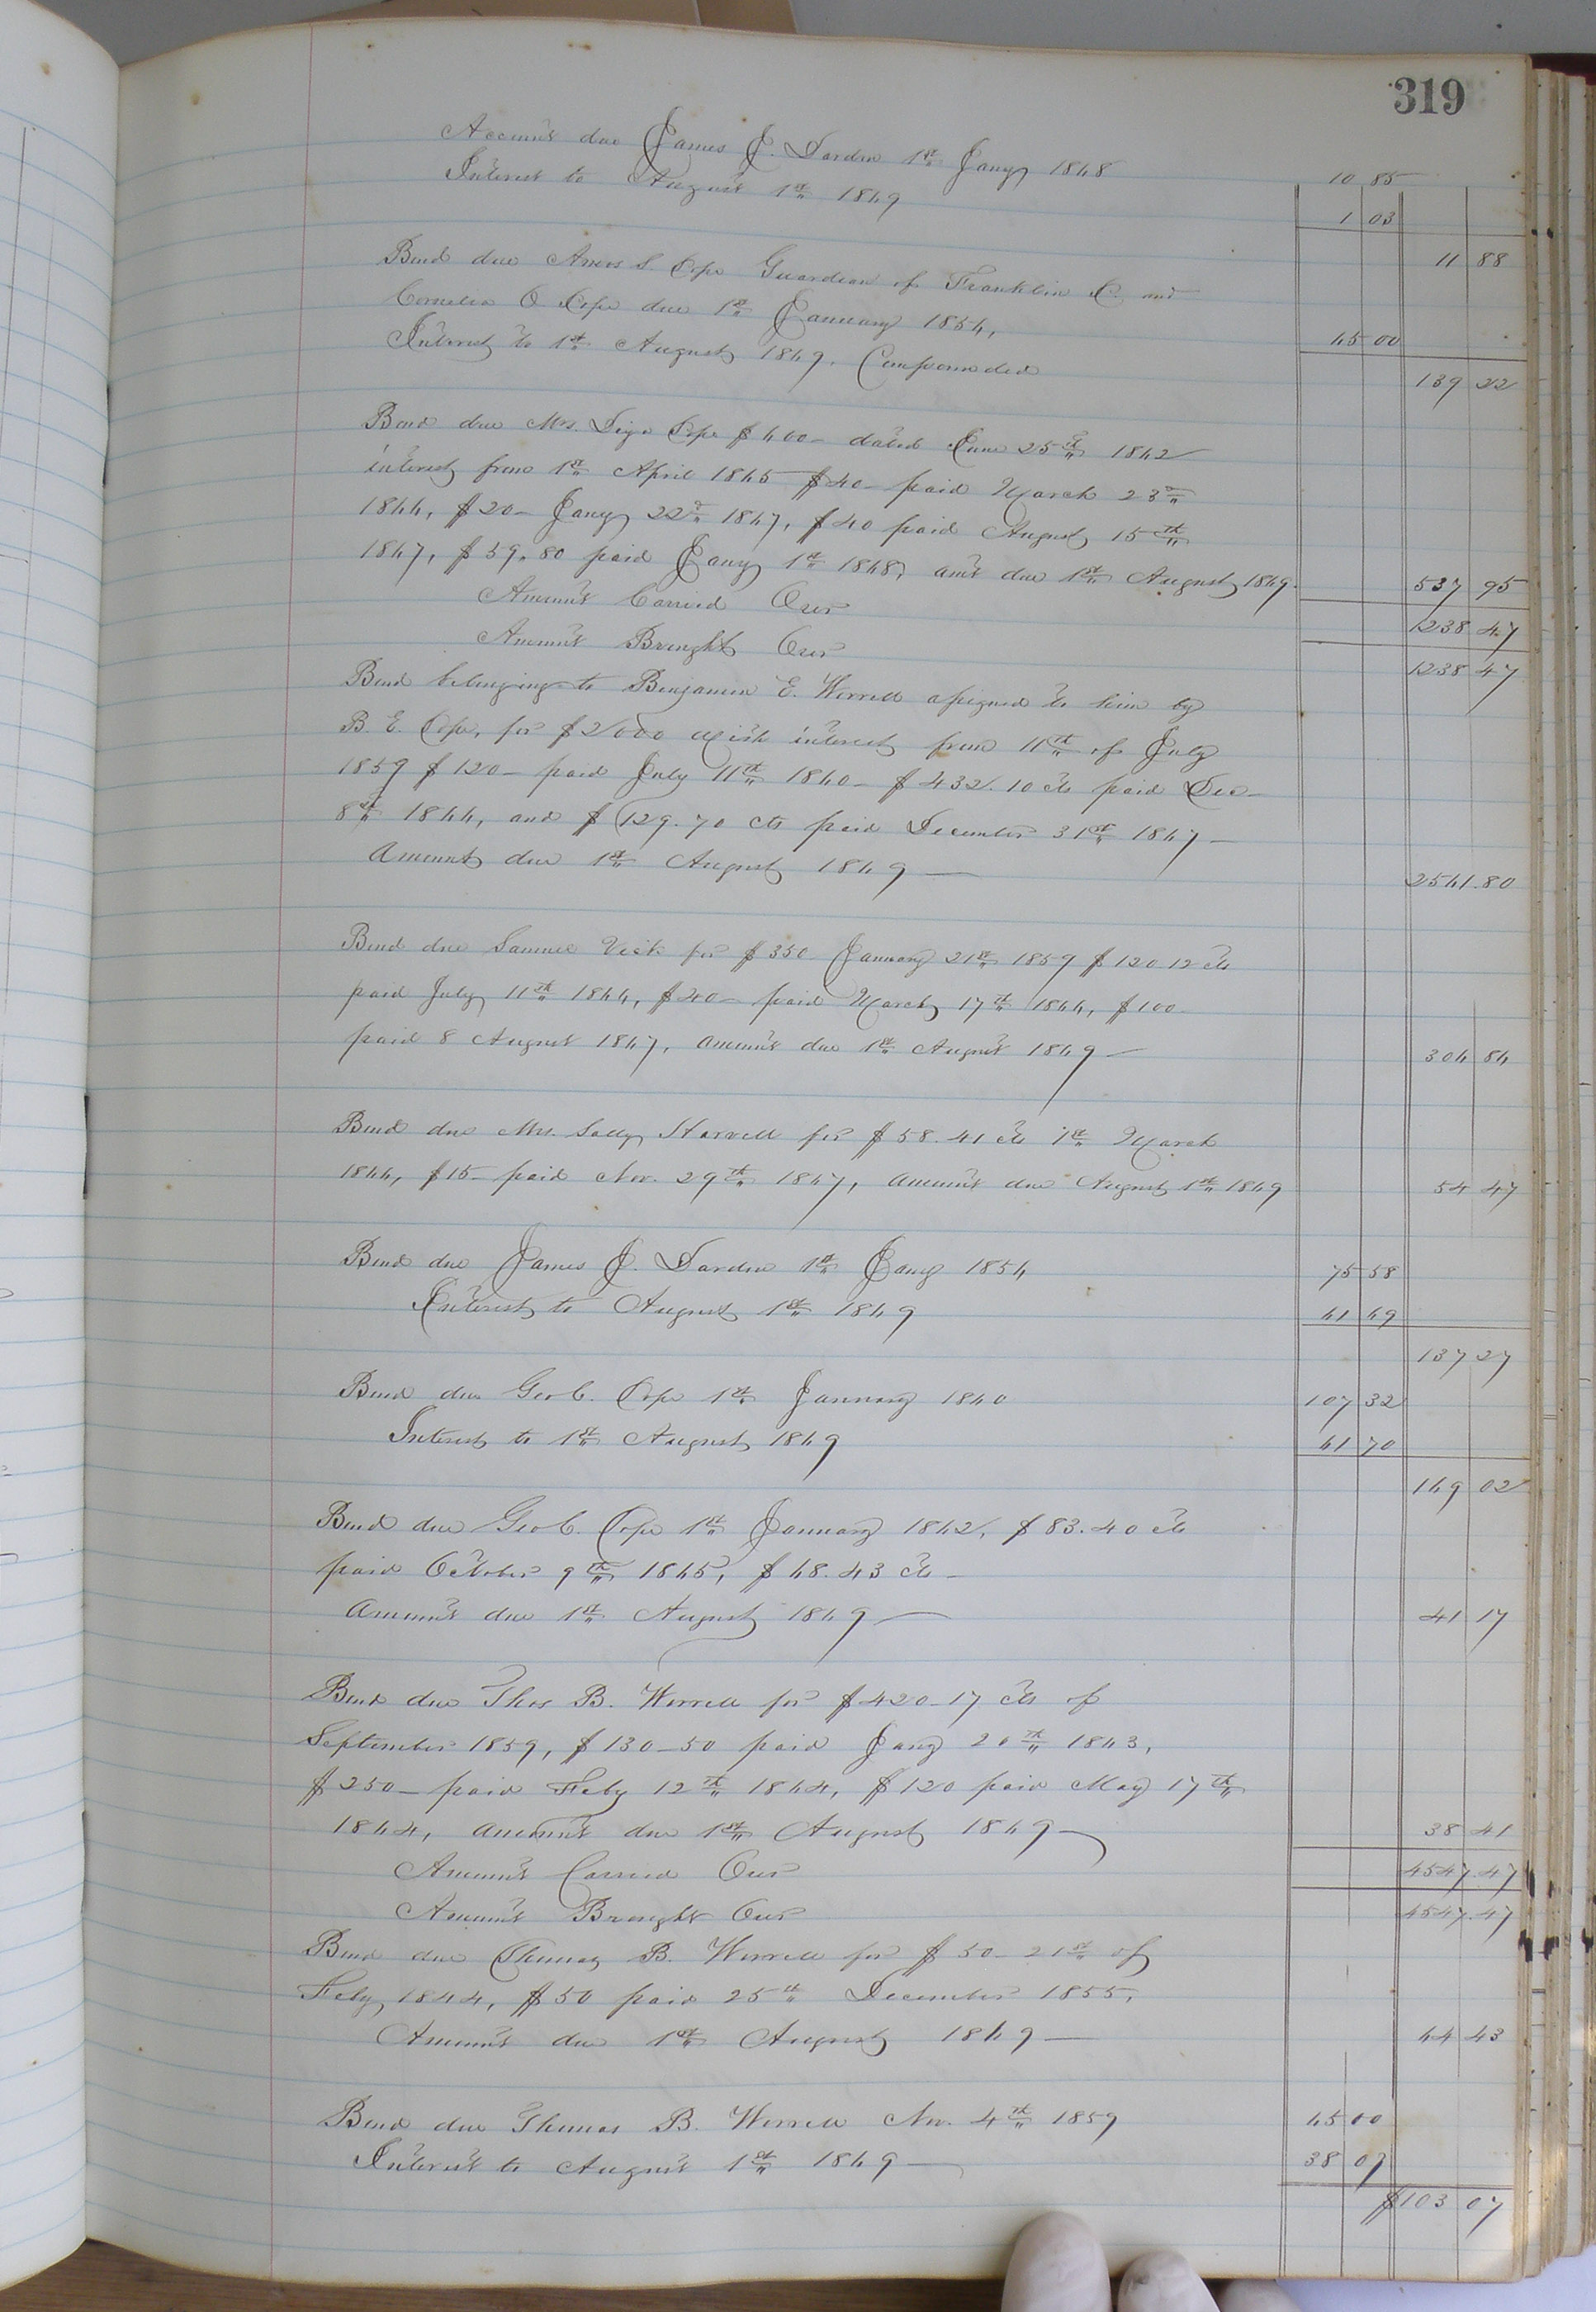 319
Account due James J. Darden 1st Jany 1848 10 85
Interest to August 1st 1849 1 03
11 88
Bond due Amos S. Pope Guardian of Franklin C. and
Cornelia O Pope due 1st January 1834, 65 00
Interest to 1st August 1849. Compounded
139 22
Bond due Mrs. Pope $400 – dated June 25th 1842
interest from 1st April 1845 $40 – paid March 23rd
1846, $20 – Jany 22d 1847, $40 paid August 15th
1847, $39.80 paid Jany 1st 1848, amt due 1st August 1849. 537 95
Amount Carried Over 1238 47
Amount Brought Over 1238 47
Bond belonging to Benjamin E. Worrell assigned to him by
B. E. Pope, for $2000 with interest from 11th of July
1839 $120 – paid July 11th 1840 – $432.10 cts paid Dec
8th 1844, and $129.70 cts paid December 31st 1847 –
Amount due 1st August 1849 – 2541.80
Bond due Samuel Vick for $350 January 21st 1839 $120 12 cts
paid July 11th 1844, $40 – paid March 17th 1844, $100
paid 8 August 1847, amount due 1st August 1849 – 304 84
Bond due Mrs. Sally Harrell for $58.41 cts 1st March
1844, $15 – paid Nov. 29th 1847, amount due August 1st 1849 54 47
Bond due James J. Darden 1st Jany 1834 75 58
Interest to August 1st 1849 61 69
137 27
Bond due Geo C. Pope 1st January 1840 107 32
Interest to 1st August 1849 61 70
169 02
Bond due Geo C. Pope 1st January 1842, $83.40 cts
paid October 9th 1845, $68.43 cts –
Amount due 1st August 1849 – 41 17
Bond due Thos B. Worrell for $420–17 cts of
September 1839, $130–50 paid Jany 20th 1843,
$250 – paid Feby 12th 1844, $120 paid May 17th
1844, amount due 1st August 1849 – 38 41
Amount Carried Over 4547.47
Amount Brought Over 4547.47
Bond due Thomas B. Worrell for $50 – 21st of
Feby 1844, $50 paid 25th December 1855,
Amount due 1st August 1849 – 44 43
Bond due Thomas B. Worrell Nov. 4th 1839 65 00
Interest to August 1st 1849 – 38 07
$103 07